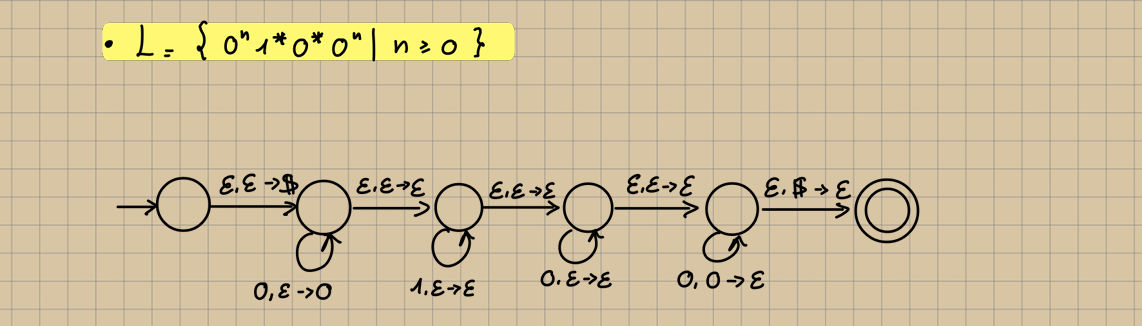 • L = { 0ⁿ 1* 0* 0ⁿ | n ≥ 0 }
ε, ε → $ ε, ε → ε ε, ε → ε ε, ε → ε ε, $ → ε
0, ε → 0 1, ε → ε 0, ε → ε 0, 0 → ε